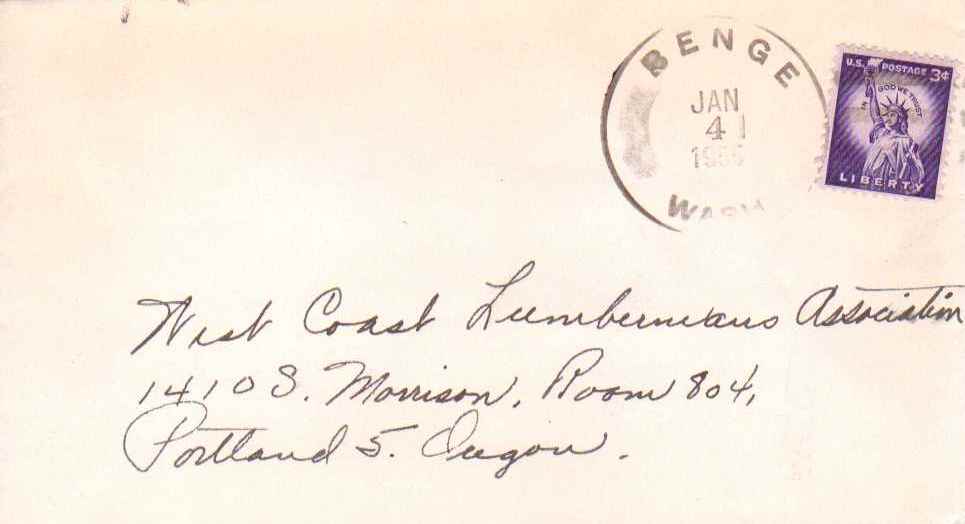 BENGE
JAN
4
WASH
U.S. POSTAGE 3¢
IN GOD WE TRUST
LIBERTY
West Coast Lumbermans Association
1410 S. Morrison, Room 804,
Portland 5. Oregon.